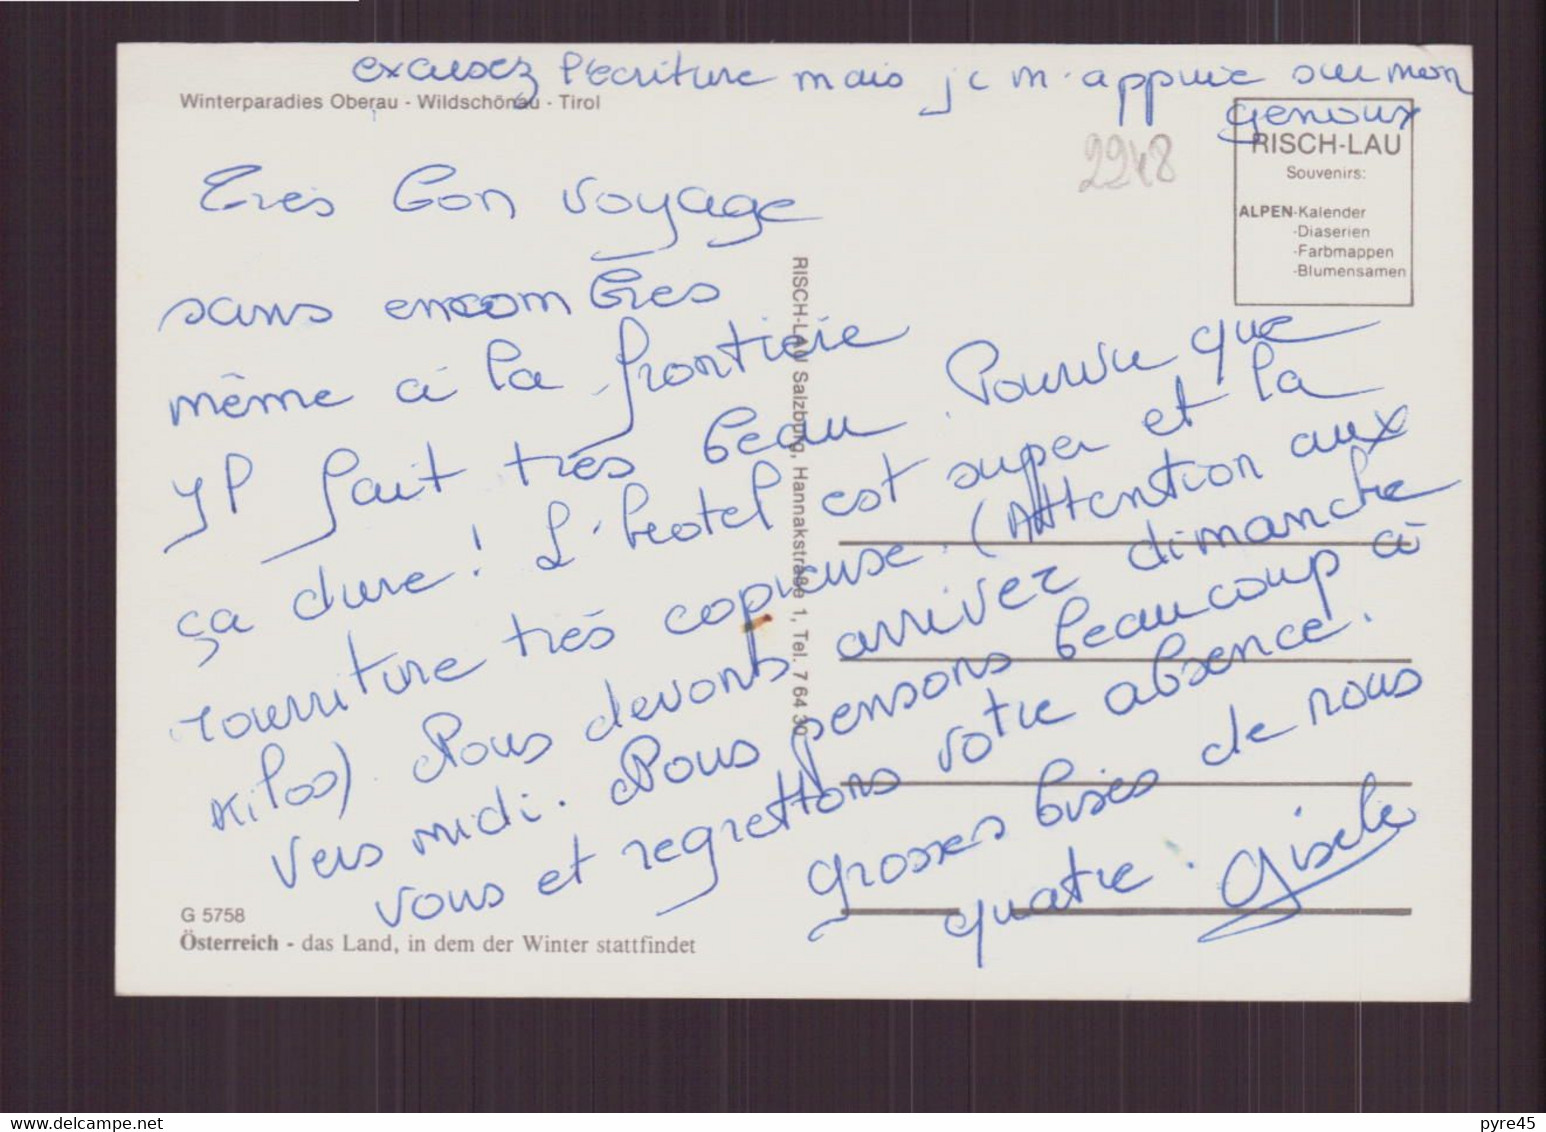 excusez l'écriture mais je m'appuie sur mon
genoux
Winterparadies Oberau - Wildschönau - Tirol
2248
RISCH-LAU
Souvenirs:
ALPEN-Kalender
-Diaserien
-Farbmappen
-Blumensamen
Très bon voyage
sans encombres
même à la frontière
Il fait très beau. Pourvu que
ça dure! L'hotel est super et la
nourriture très copieuse. (Attention aux
kilos). Nous devons arriver dimanche
vers midi. Nous pensons beaucoup à
vous et regrettons votre absence.
grosses bises de nous
quatre. Gisele
RISCH-LAU Salzburg, Hannakstraße 1, Tel. 7 64 30
G 5758
Österreich - das Land, in dem der Winter stattfindet
www.delcampe.net
pyre45